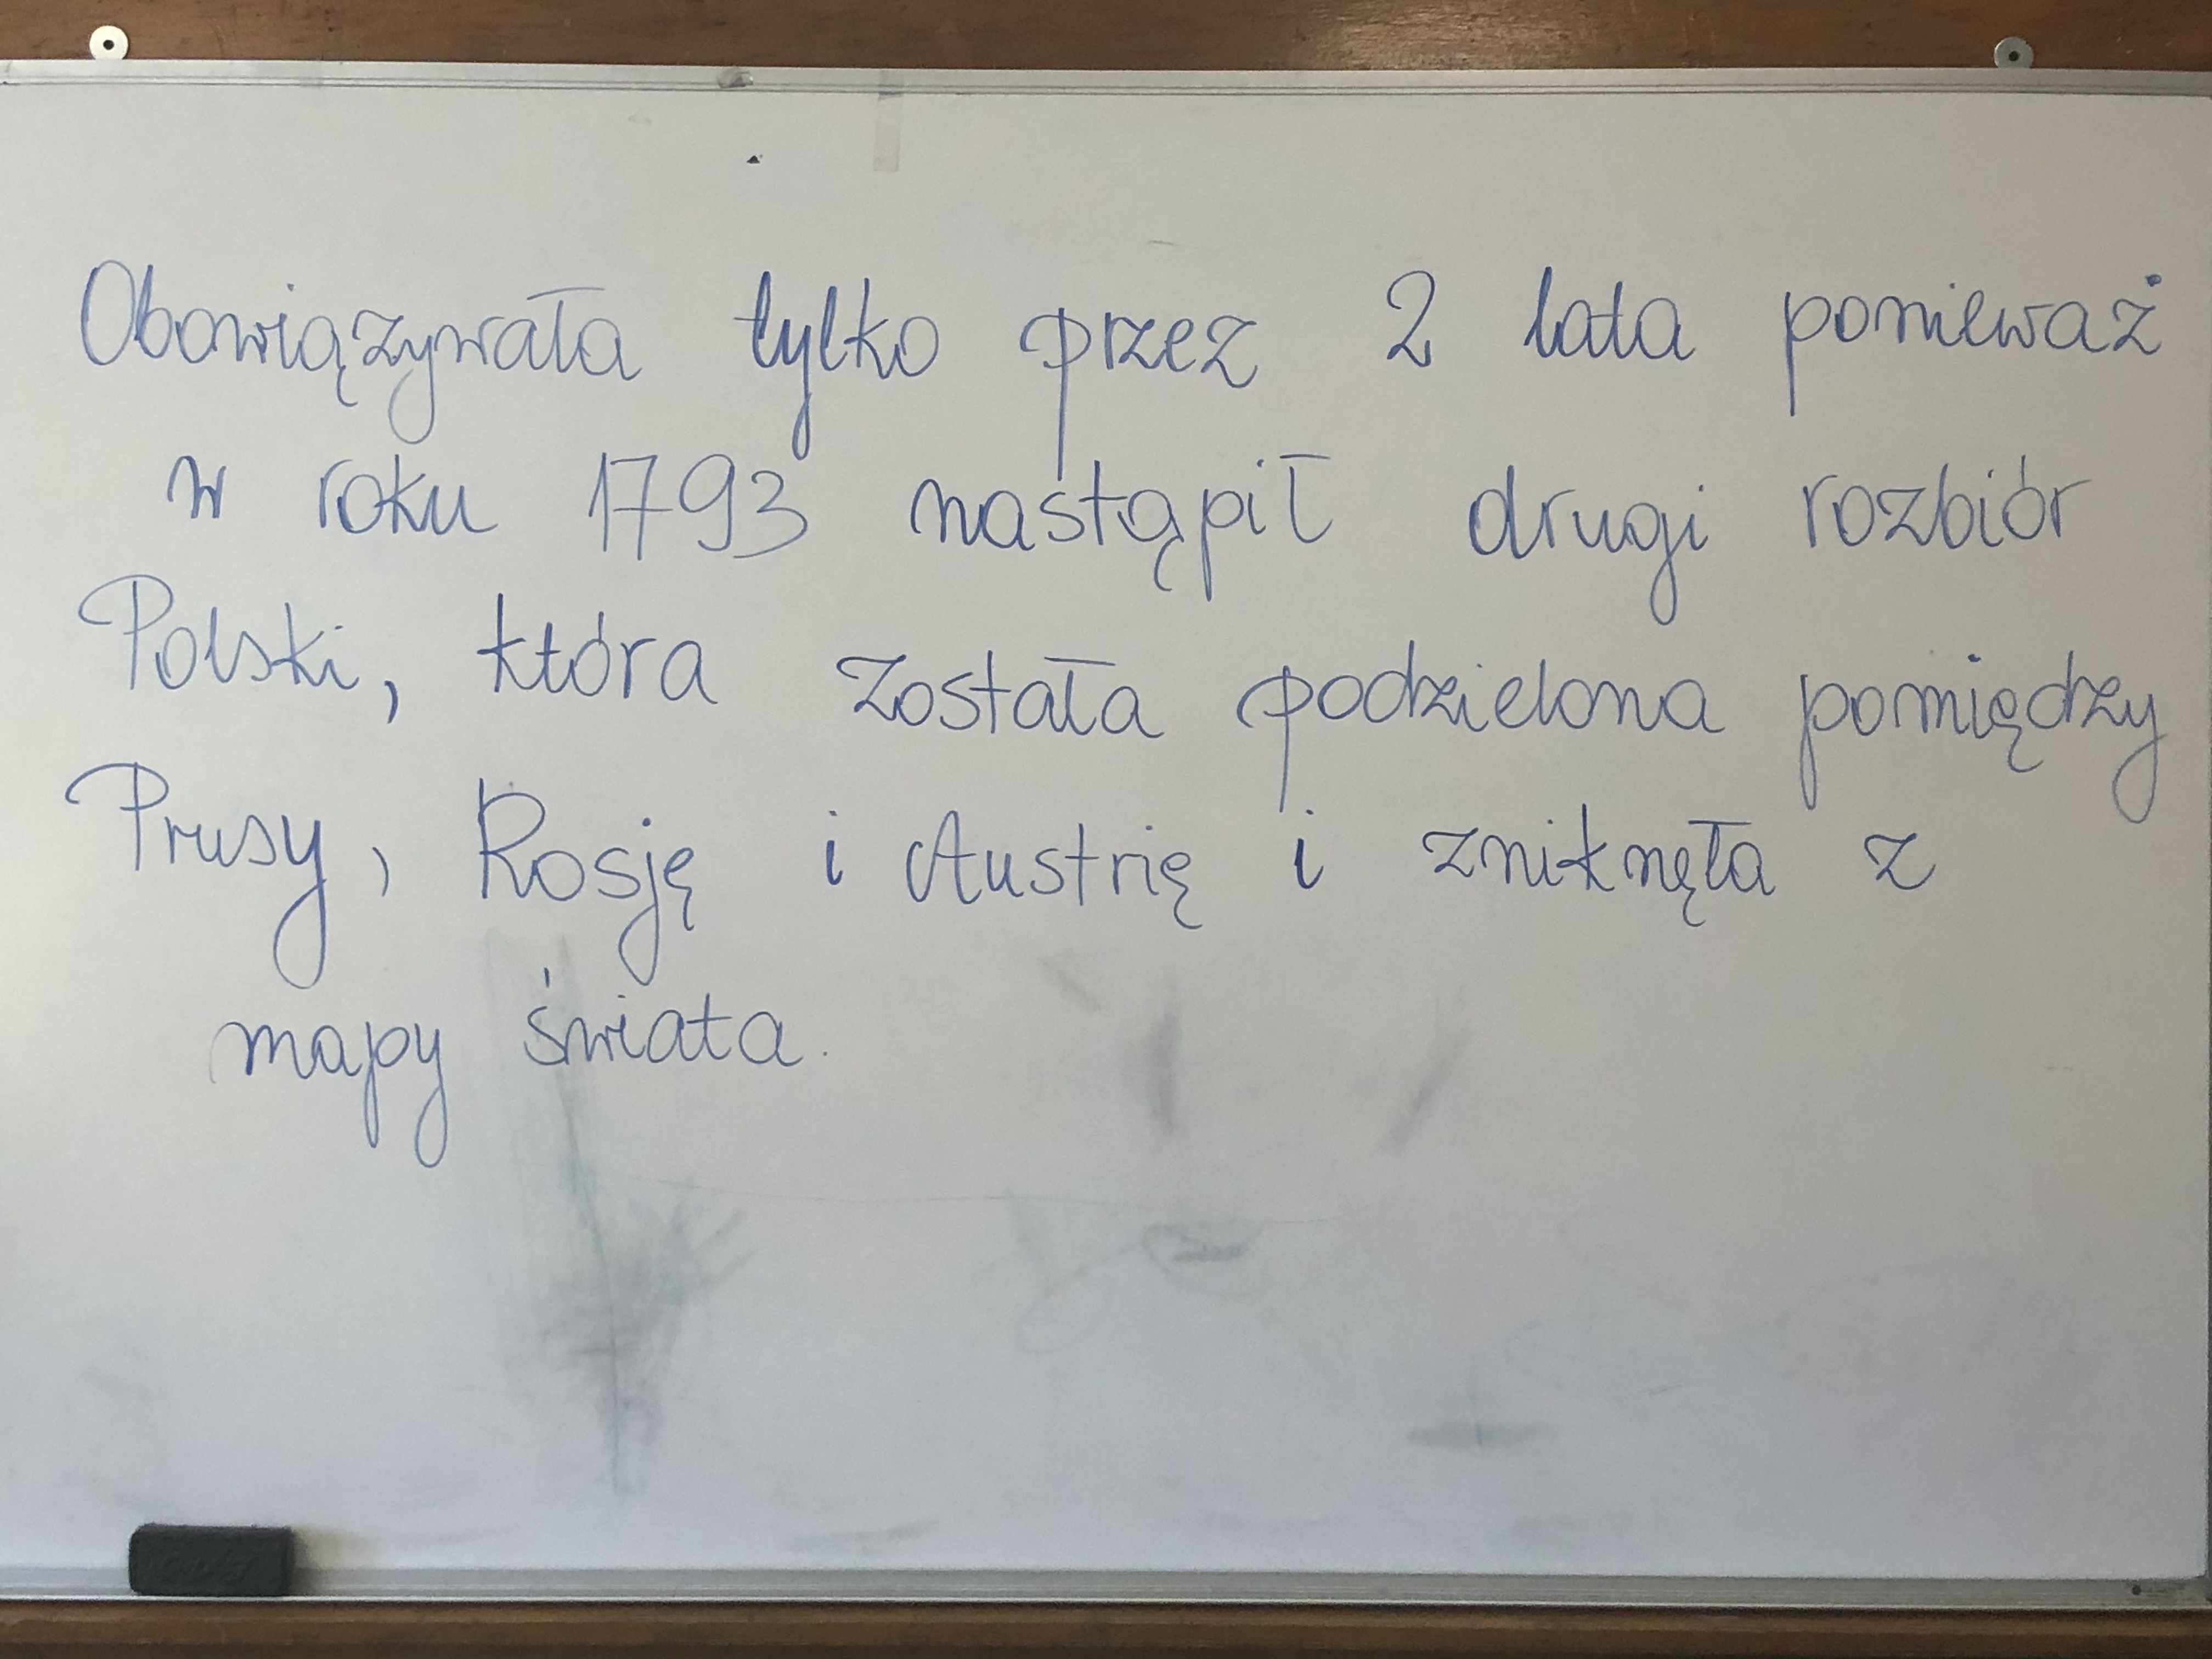 Obowiązywała tylko przez 2 lata ponieważ
w roku 1793 nastąpił drugi rozbiór
Polski, która została podzielona pomiędzy
Prusy, Rosję i Austrię i zniknęła z
mapy świata.